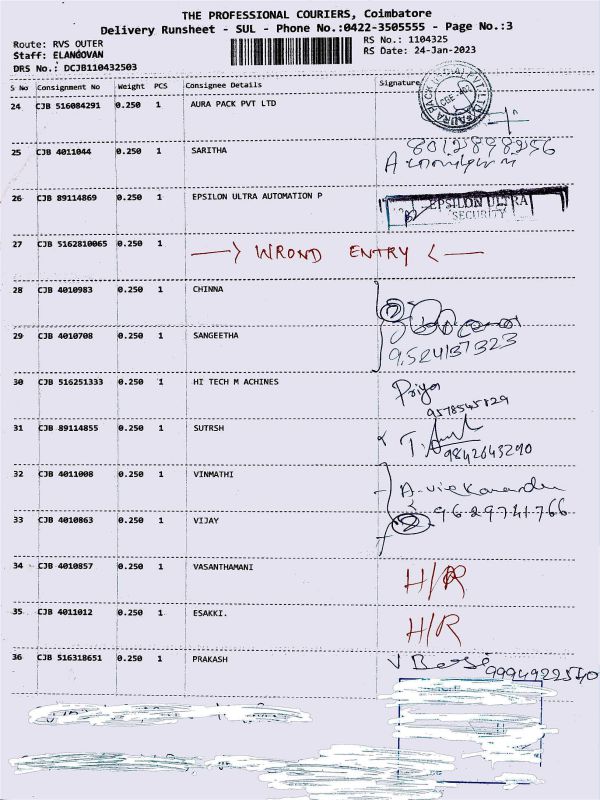 THE PROFESSIONAL COURIERS, Coimbatore
Delivery Runsheet - SUL - Phone No.:0422-3505555 - Page No.:3
Route: RVS OUTER
RS No.: 1104325
Staff: ELANGOVAN
RS Date: 24-Jan-2023
DRS No.: DCJB110432503
S No Consignment No Weight PCS Consignee Details Signature
24 CJB 516084291 0.250 1 AURA PACK PVT LTD
25 CJB 4011044 0.250 1 SARITHA
26 CJB 89114869 0.250 1 EPSILON ULTRA AUTOMATION P EPSILON ULTRA
SECURITY
27 CJB 5162810065 0.250 1 WROND ENTRY
28 CJB 4010983 0.250 1 CHINNA
29 CJB 4010708 0.250 1 SANGEETHA
30 CJB 516251333 0.250 1 HI TECH M ACHINES Priya
9578545829
31 CJB 89114855 0.250 1 SUTRSH
9842643290
32 CJB 4011008 0.250 1 VINMATHI
9629741766
33 CJB 4010863 0.250 1 VIJAY 2
34 CJB 4010857 0.250 1 VASANTHAMANI H/R
35 CJB 4011012 0.250 1 ESAKKI. H/R
36 CJB 516318651 0.250 1 PRAKASH
9994922540